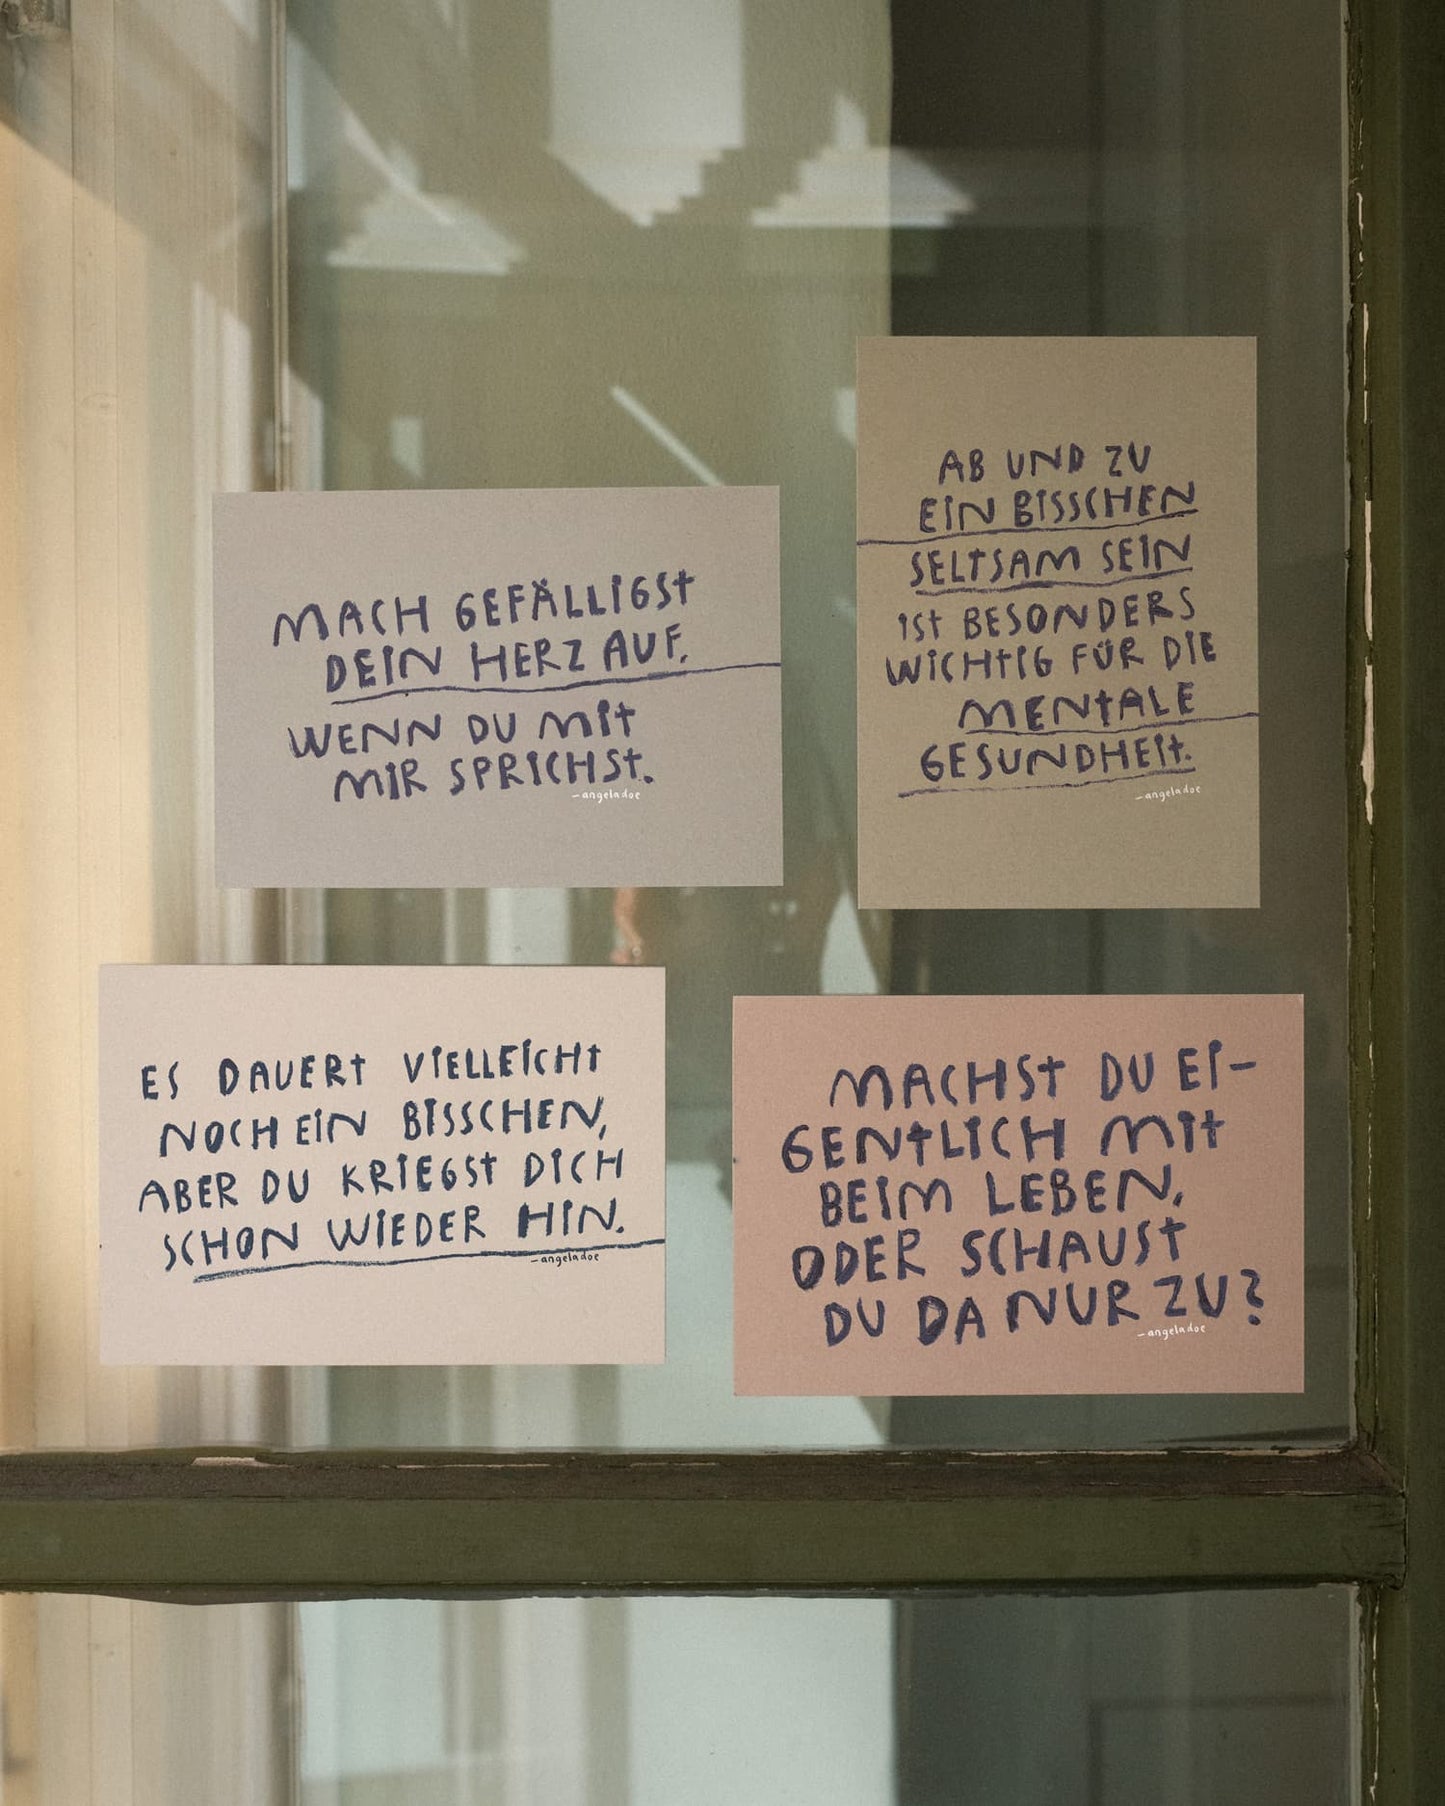 MACH GEFÄLLIGST
DEIN HERZ AUF,
WENN DU MIT
MIR SPRICHST.
-angeladoe
AB UND ZU
EIN BISSCHEN
SELTSAM SEIN
IST BESONDERS
WICHTIG FÜR DIE
MENTALE
GESUNDHEIT.
-angeladoe
ES DAUERT VIELLEICHT
NOCH EIN BISSCHEN,
ABER DU KRIEGST DICH
SCHON WIEDER HIN.
-angeladoe
MACHST DU EI-
GENTLICH MIT
BEIM LEBEN,
ODER SCHAUST
DU DA NUR ZU?
-angeladoe